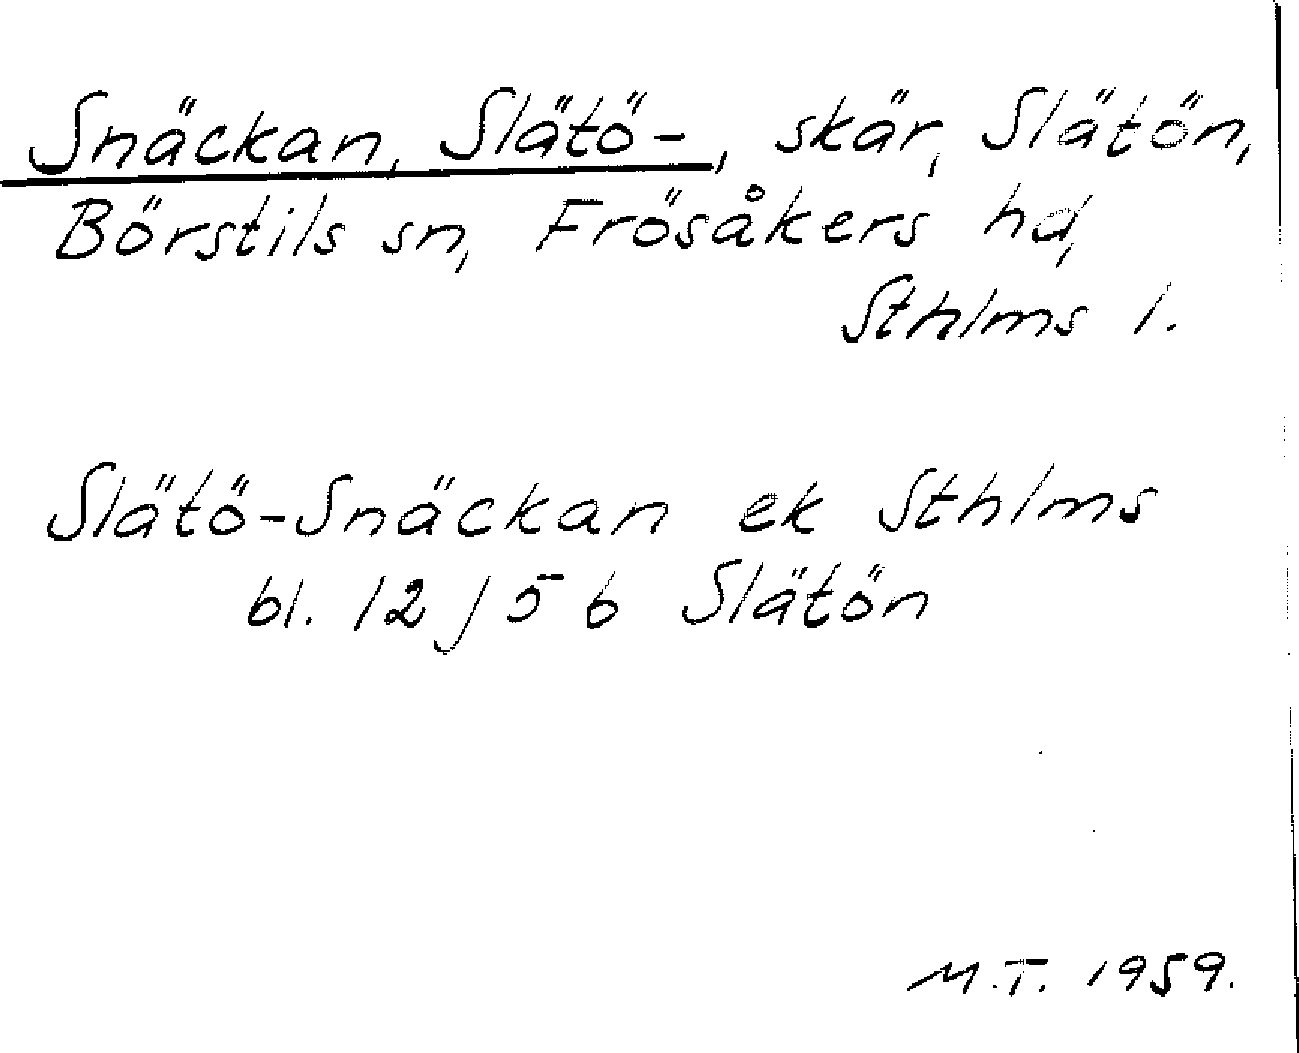 Snäckan, Slätö-, skär, Slätön,
Börstils sn, Frösåkers hd,
Sthlms l.
Slätö-Snäckan ek Sthlms
bl. 12 J 5 b Slätön
M.T. 1959.